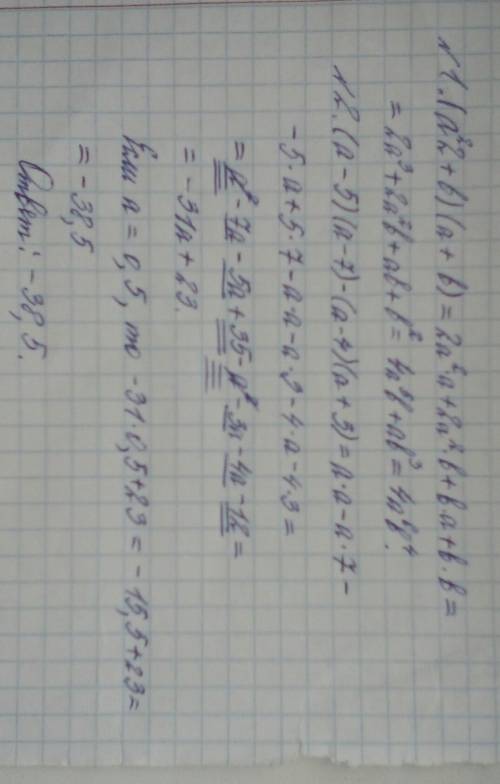 №1. (a²2 + b)(a + b) = 2a²a + 2a²·b + b·a + b·b =
= 2a³ + 2a²b + ab + b² = 4a⁶b + ab³ = 4a⁶b⁴.
№2. (a - 5)(a - 7) - (a - 4)(a + 3) = a·a - a·7 -
- 5·a + 5·7 - a·a - a·3 - 4·a - 4·3 =
= a² - 7a - 5a + 35 - a² - 3a - 4a - 12 =
= - 31a + 23.
Если a = 0,5, то - 31·0,5 + 23 = - 15,5 + 23 =
= - 38,5
Ответ: - 38,5.